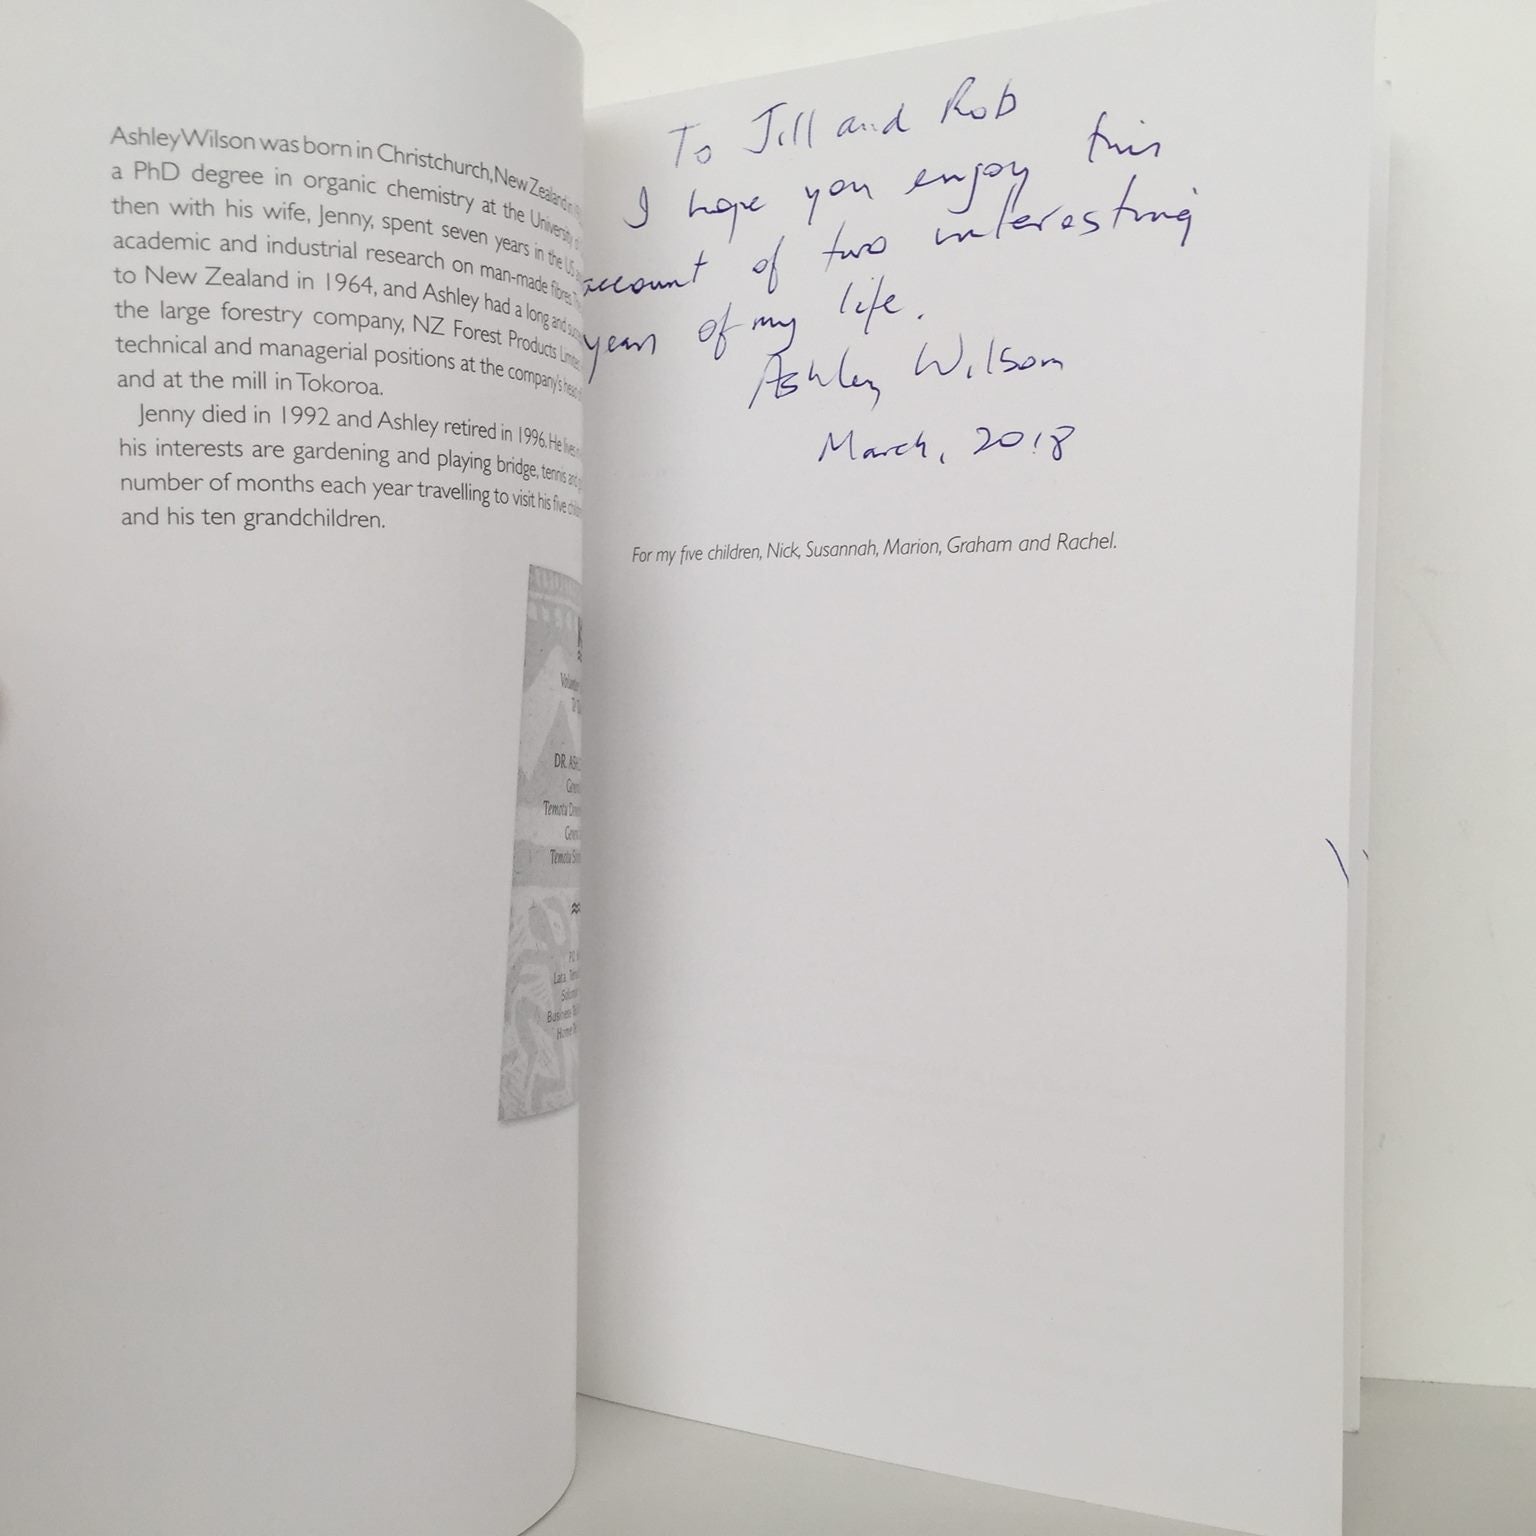 Ashley Wilson was born in Christchurch, New Zealand in
a PhD degree in organic chemistry at the University of
then with his wife, Jenny, spent seven years in the US
academic and industrial research on man-made fibres.
to New Zealand in 1964, and Ashley had a long and
the large forestry company, NZ Forest Products Limited
technical and managerial positions at the company's head
and at the mill in Tokoroa.
Jenny died in 1992 and Ashley retired in 1996. He lives
his interests are gardening and playing bridge, tennis and
number of months each year travelling to visit his five
and his ten grandchildren.
DR. ASH
Temotu
Temotu
Lata,
Business
Home
To Jill and Rob
I hope you enjoy this
account of two interesting
years of my life.
Ashley Wilson
March, 2018
For my five children, Nick, Susannah, Marion, Graham and Rachel.